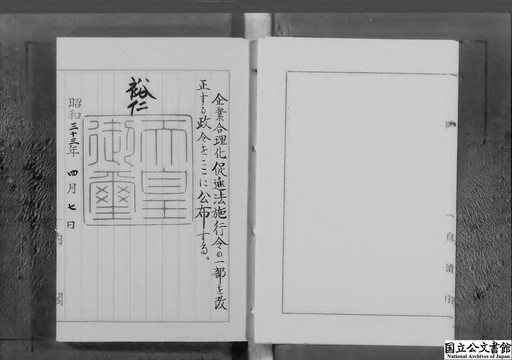 企業合理化促進法施行令の一部を改
正する政令をここに公布する。
裕仁
天皇
御璽
昭和三十三年四月七日
内閣
国立公文書館
National Archives of Japan